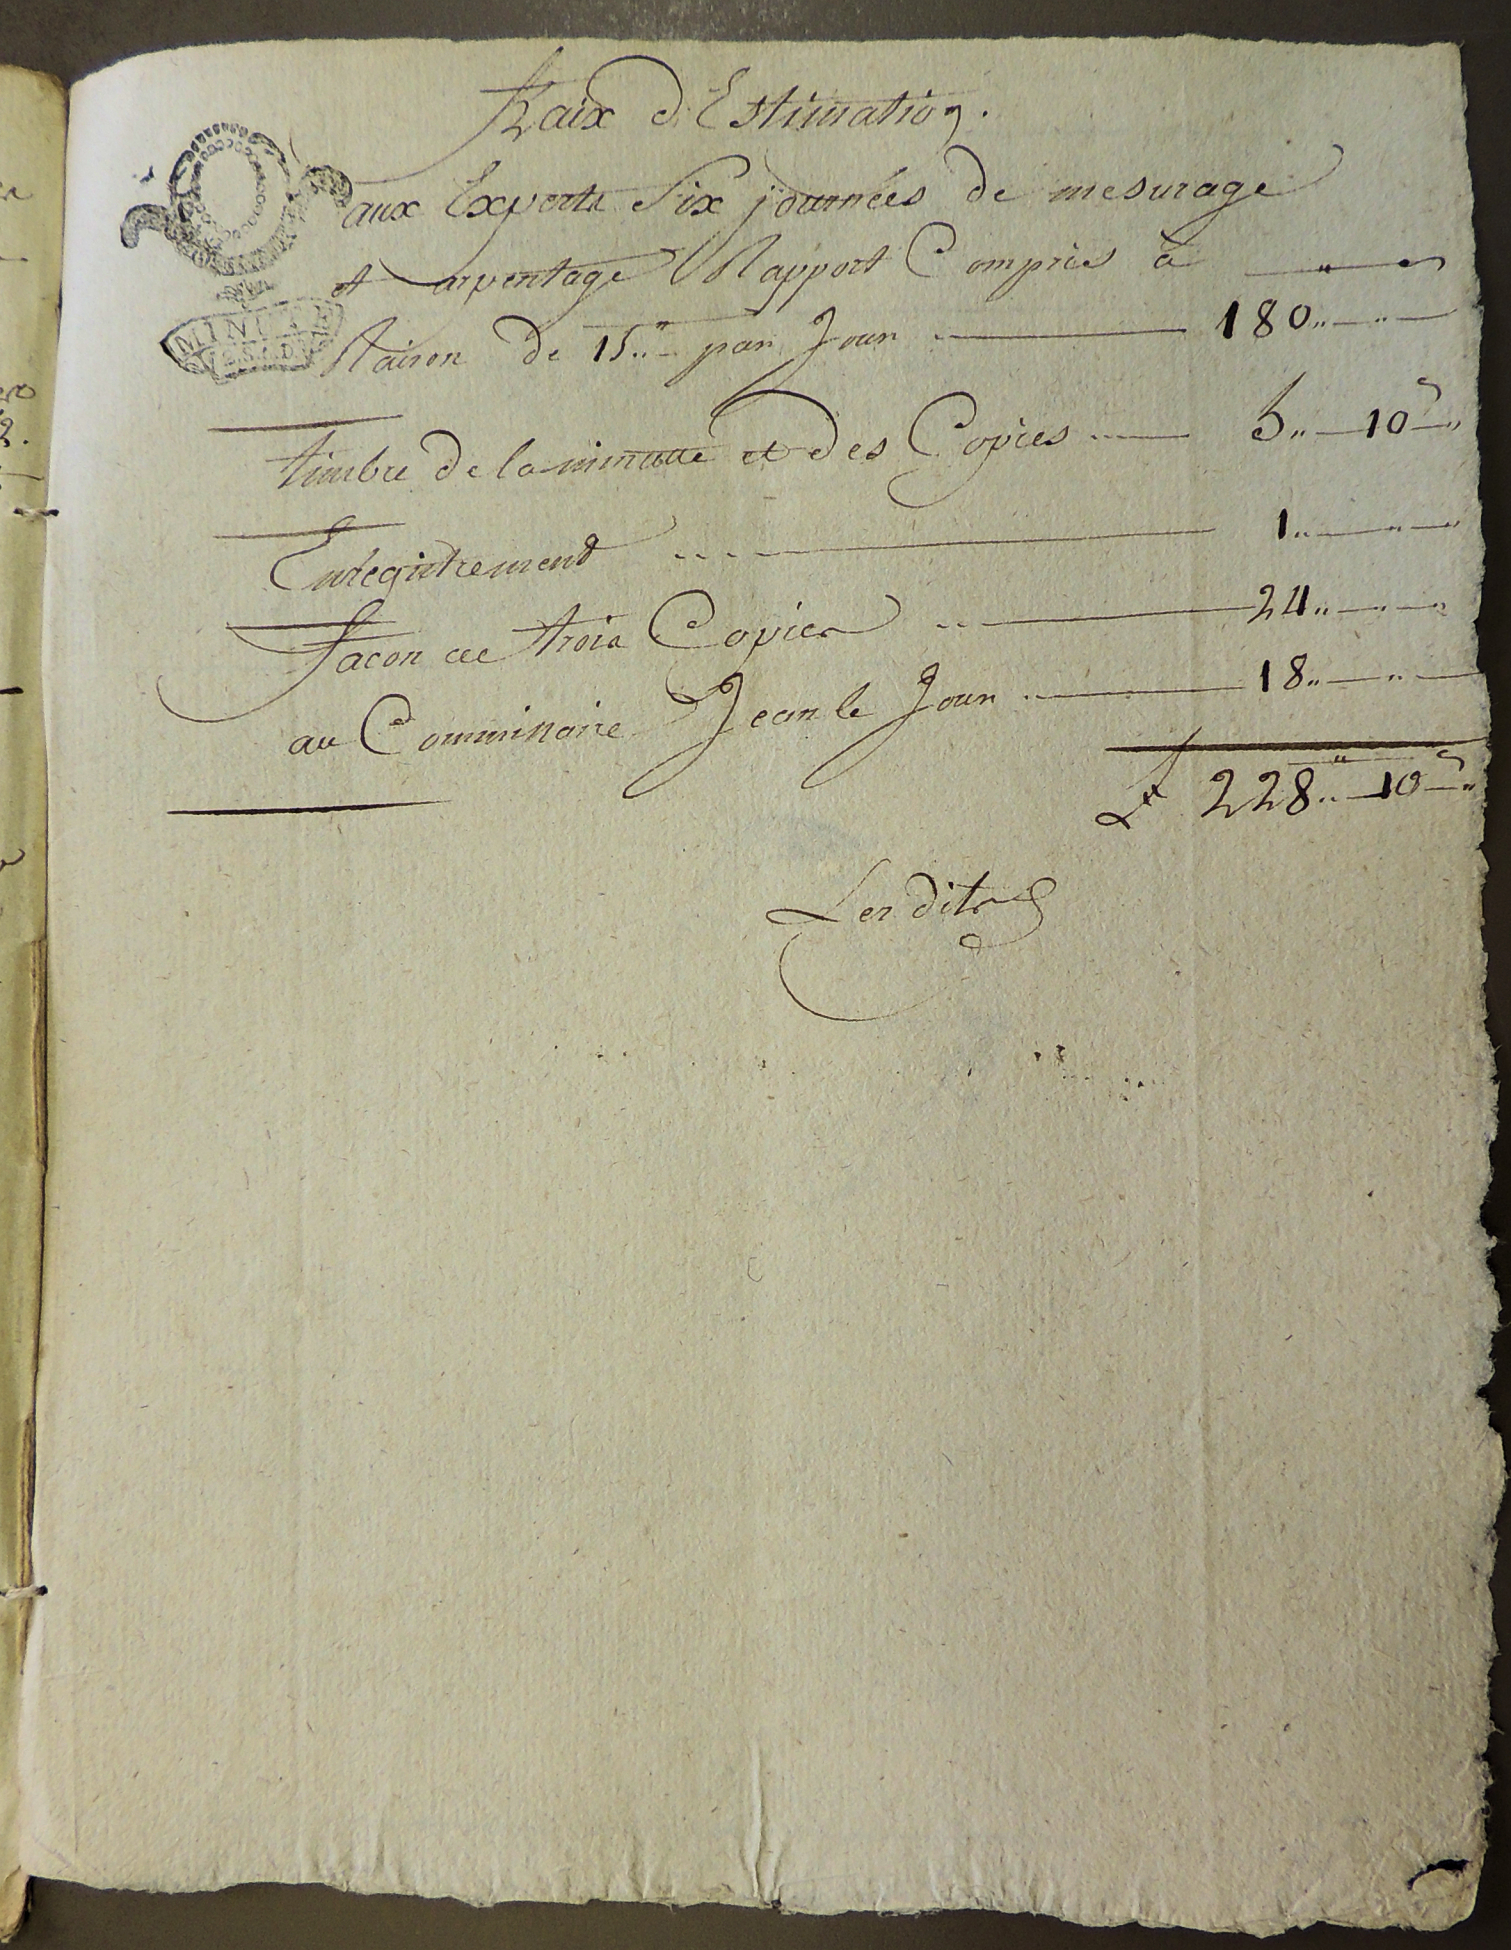 fraix d'Estimation.
aux Experts Six journées de mesurage
et arpentage Rapport Compris à
Raison de 15..- par Jour 180..
MINUTE
timbre de la minutte et des Copies 5..-10
Enregistrement 1..
facon de trois Copies 24..
au Commissaire Jean le Jour 18..
₶ 228..-10
Les dits